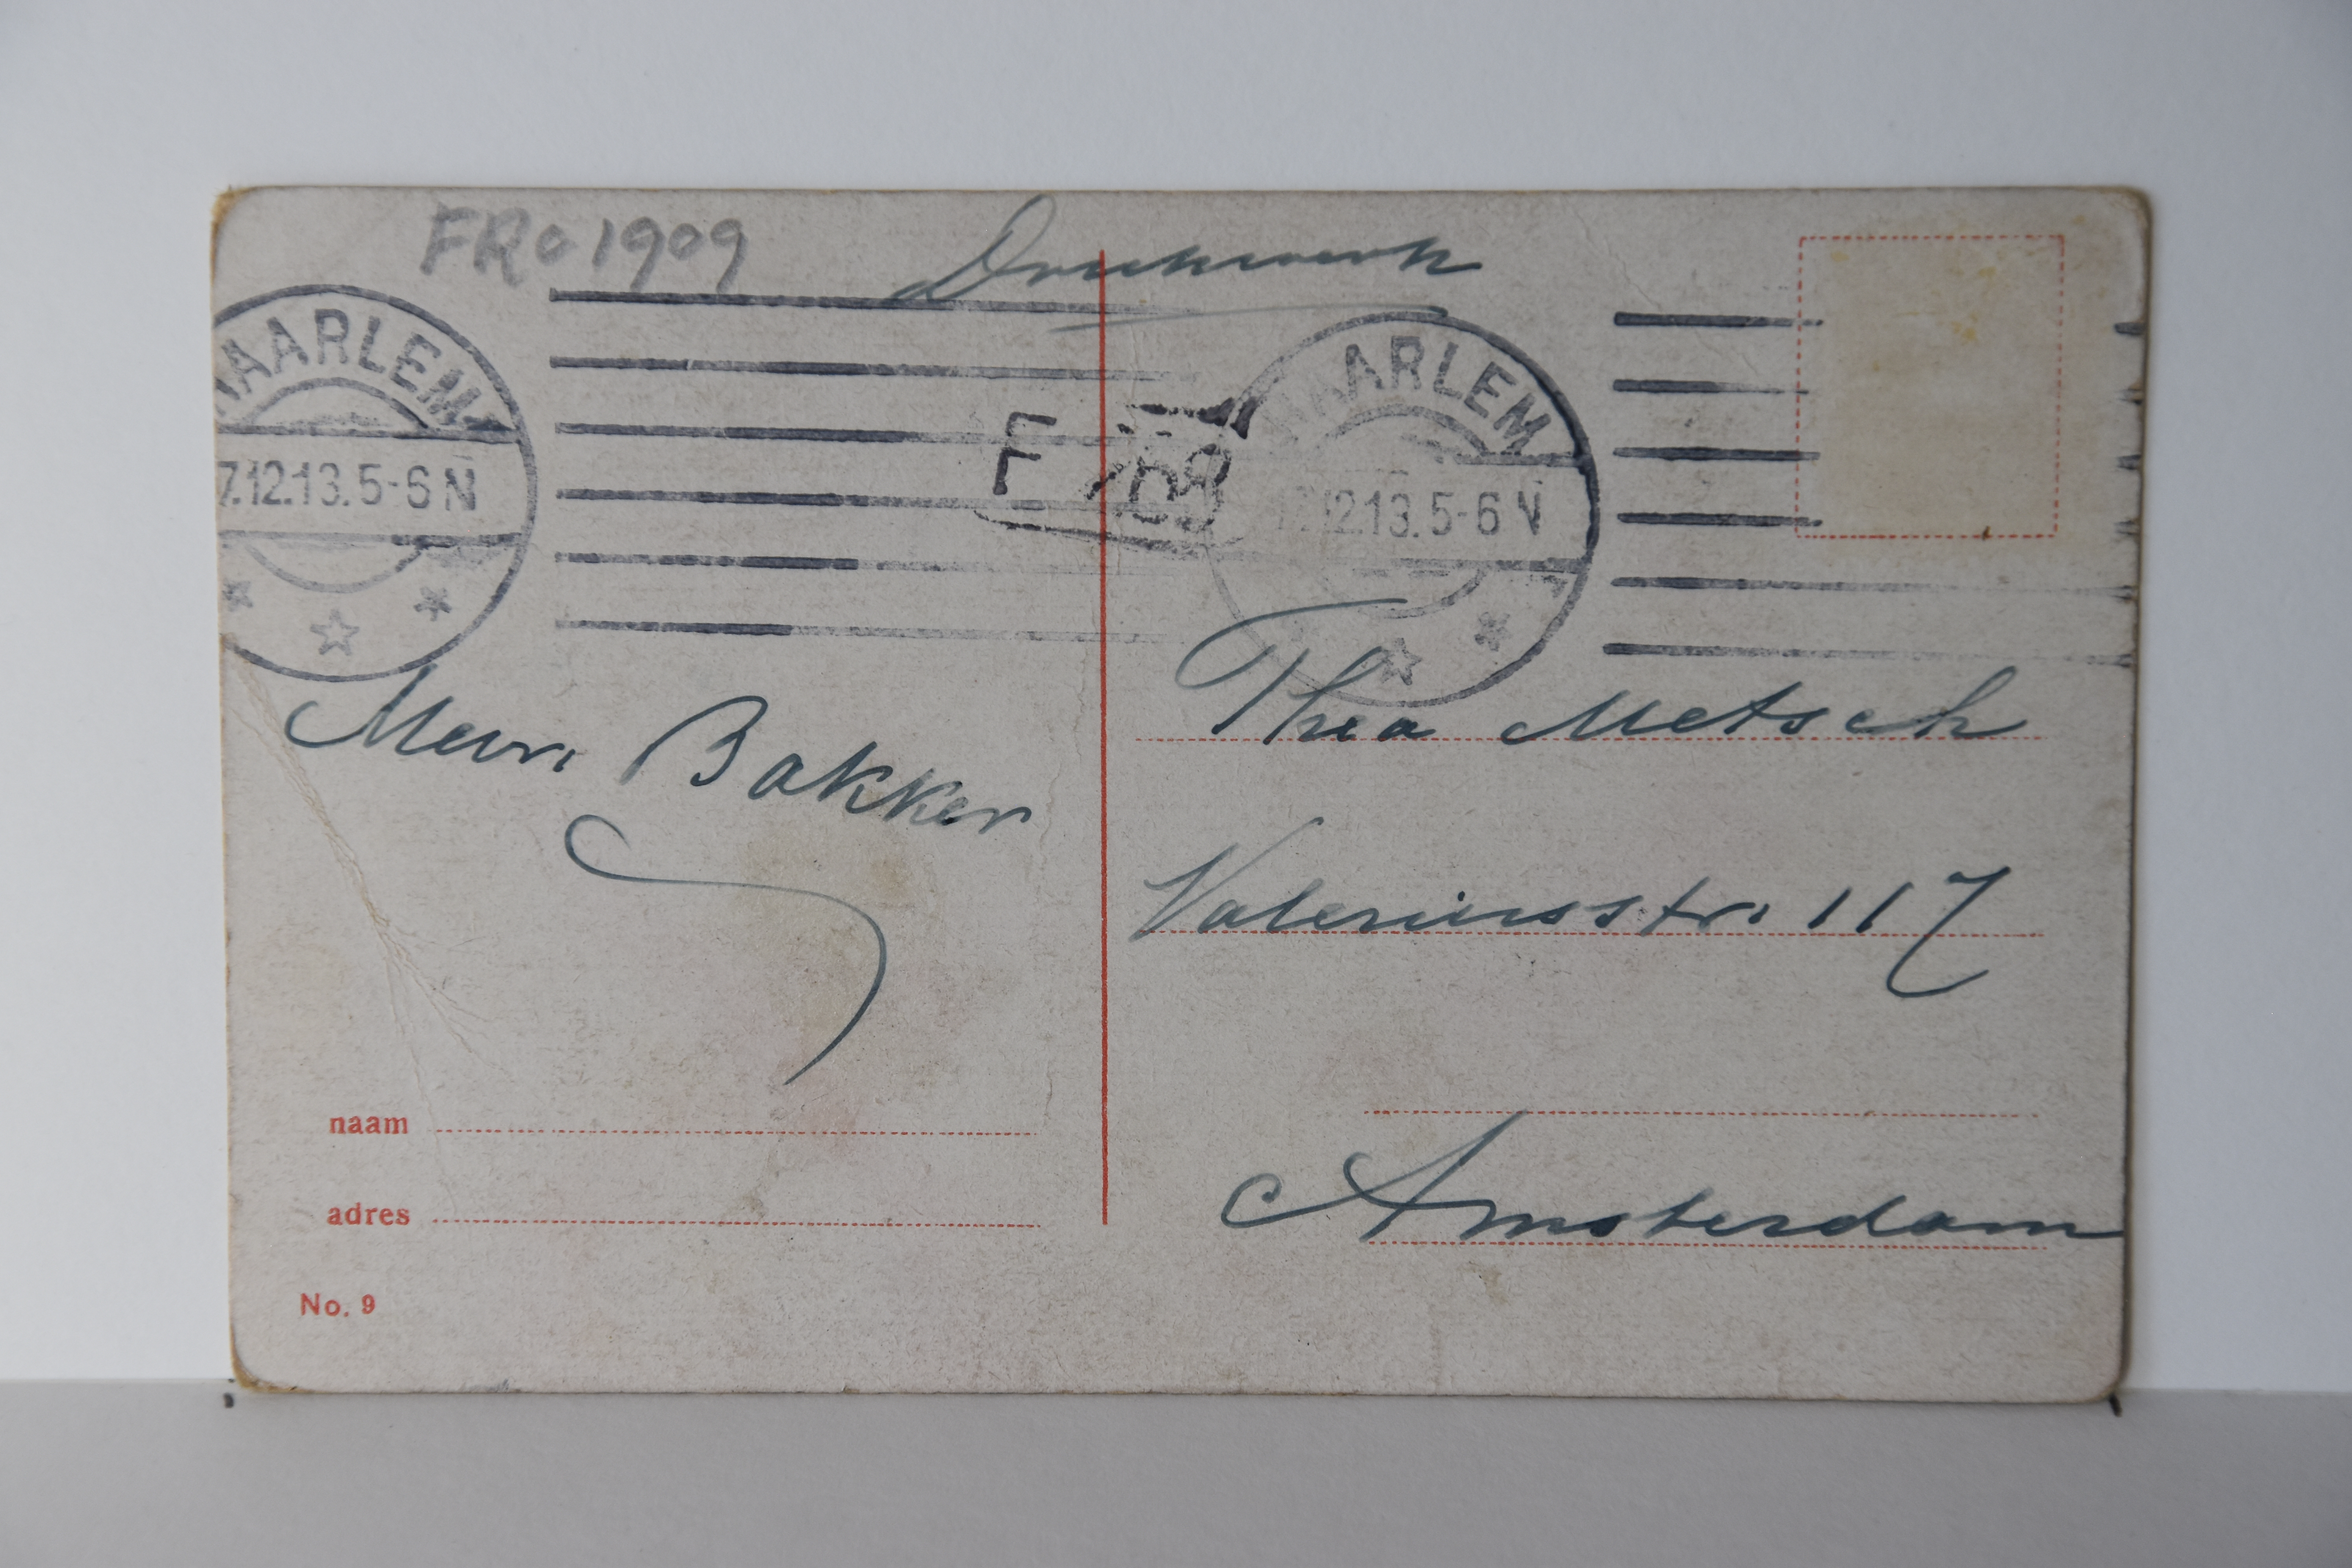 FRO 1909
Drukwerk
HAARLEM
7.12.13.5-6 N
HAARLEM
12.13.5-6 V
F
Mevr. Bakker
Thea Metsch
Valeriusstr. 117
Amsterdam
naam
adres
No. 9